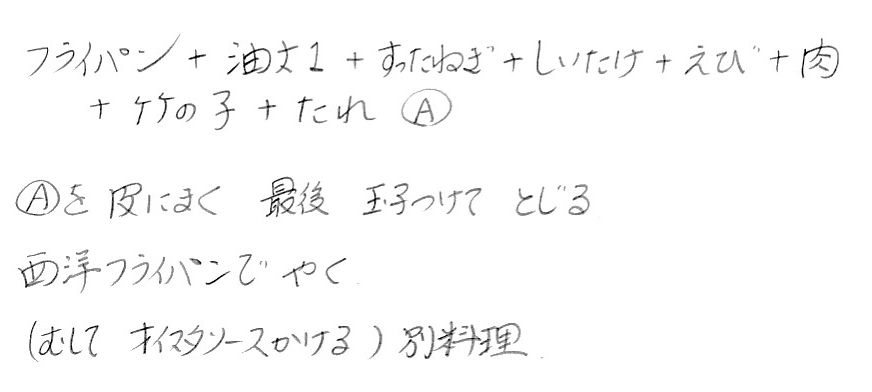 フライパン + 油大1 + すったねぎ + しいたけ + えび + 肉
+ 竹の子 + たれ Ⓐ
Ⓐを 皮にまく 最後 玉子つけて とじる
西洋フライパンで やく
(むして オイスタソースかける) 別料理